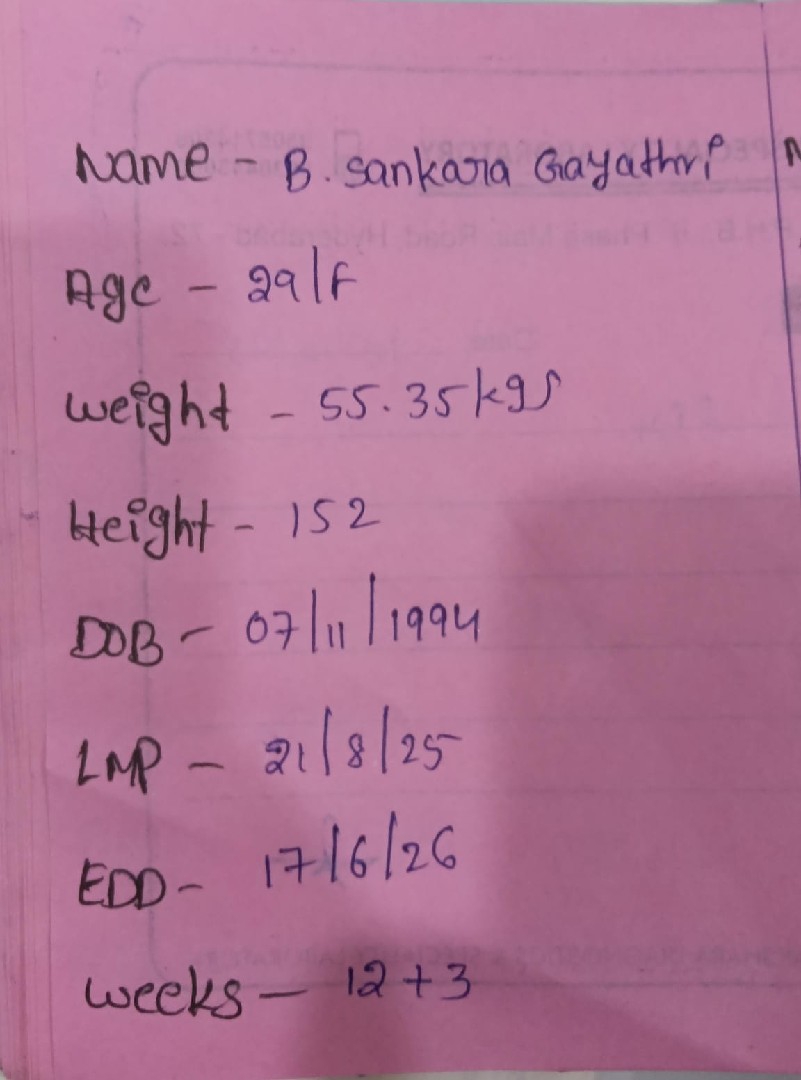 Name - B. Sankara Gayathri
Age - 29/F
weight - 55.35 kgs
Height - 152
DOB - 07/11/1994
LMP - 21/8/25
EDD - 17/6/26
weeks - 12+3